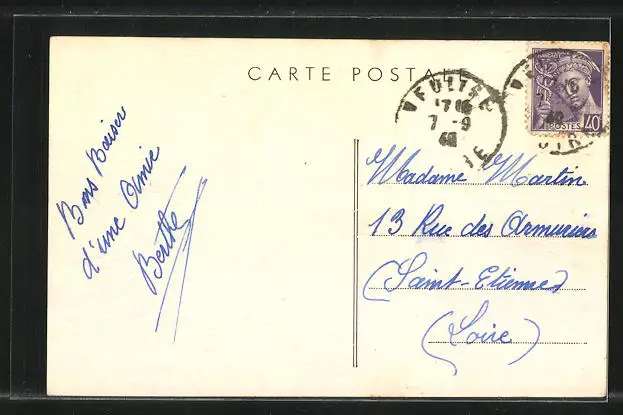 CARTE POSTALE
17 15
7 - 9
POSTES 40
Bons Baiser
d'une Amie
Berthe
Madame Martin
13 Rue des Armuriers
(Saint-Etienne)
(Loire)